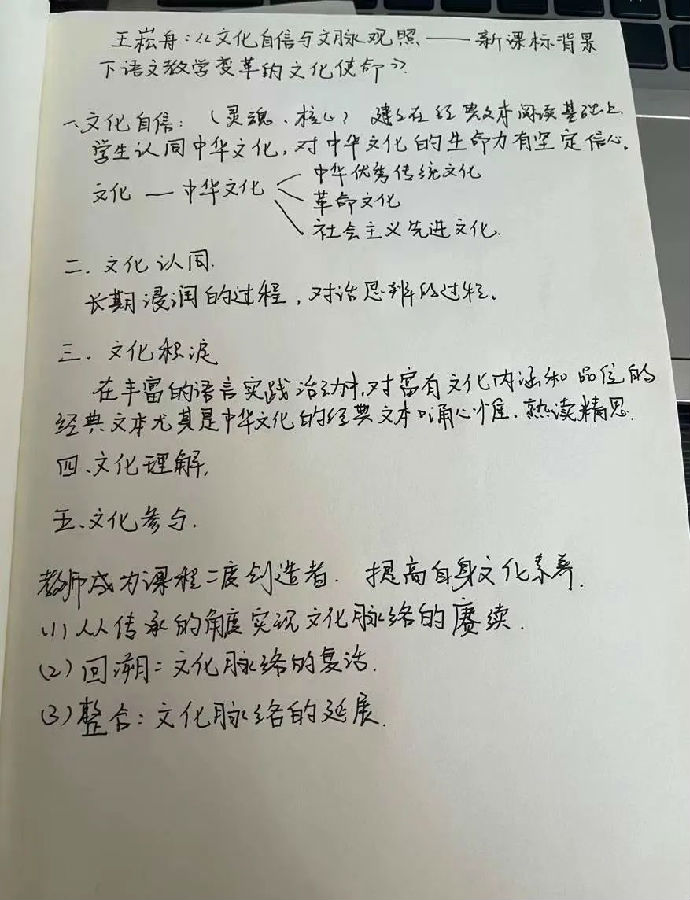 王崧舟:《文化自信与文脉观照——新课标背景
下语文教学变革的文化使命》
一、文化自信:(灵魂、核心) 建立在经典文本阅读基础上
学生认同中华文化,对中华文化的生命力有坚定信心。
中华优秀传统文化
文化 — 中华文化 革命文化
社会主义先进文化.
二.文化认同.
长期浸润的过程,对话思辨的过程。
三.文化积淀
在丰富的语言实践活动中,对富有文化内涵和品位的
经典文本尤其是中华文化的经典文本口诵心惟.熟读精思.
四.文化理解.
五.文化参与.
教师成为课程二度创造者. 提高自身文化素养.
(1)从传承的角度实现文化脉络的赓续.
(2)回溯:文化脉络的复活.
(3)整合:文化脉络的延展.